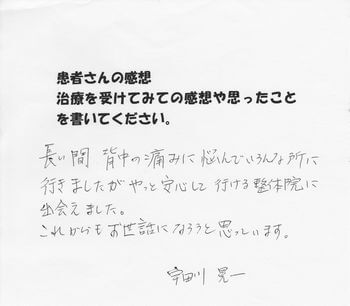 患者さんの感想
治療を受けてみての感想や思ったこと
を書いてください。
長い間 背中の痛みに悩んでいろんな所に
行きましたが やっと安心して 行ける 整体院に
出会えました。
これからも お世話に なろうと 思っています。
宇田川 晃一